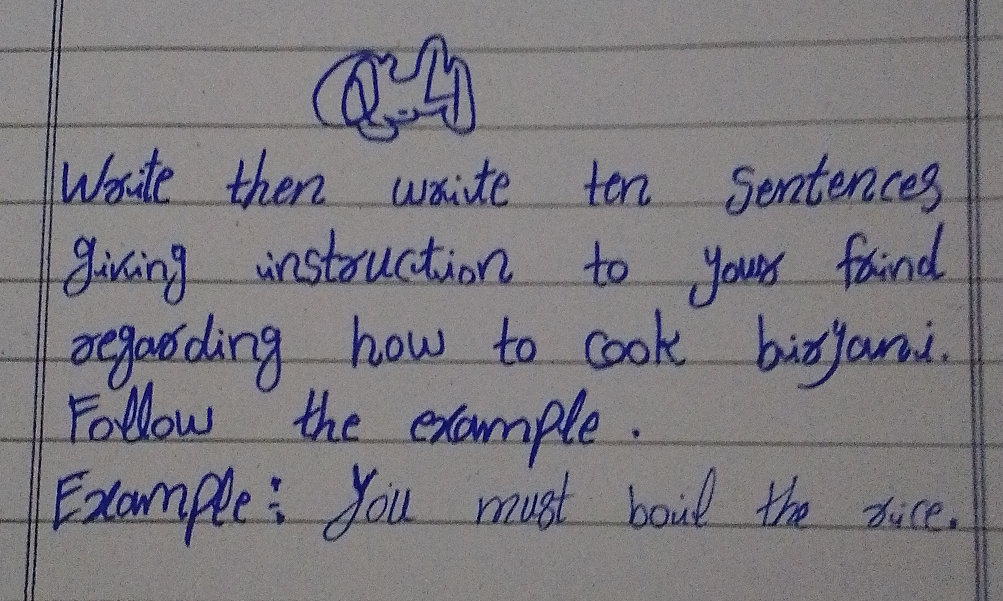 Q.4
Write then write ten Sentences
giving instruction to your faind
regarding how to cook biryani.
Follow the example.
Example: You must boil the rice.